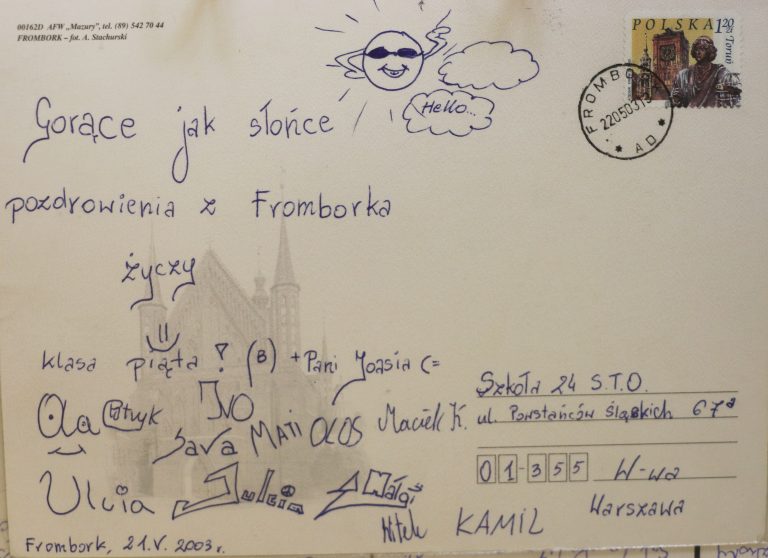 00162D AFW „Mazury”, tel. (89) 542 70 44
FROMBORK – fot. A. Stachurski
POLSKA 1,20 zł
Toruń
FROMBO
22050319
AD
Hello...
Gorące jak słońce
pozdrowienia z Fromborka
życzy
klasa piąta ? (B) + Pani Joasia (=
Ola Patryk IVO
Sara MATI OLOS Maciek K.
Ulcia Julcia Małgi
Witek KAMIL
Frombork, 21.V. 2003r.
Szkoła 24 S.T.O.
ul. Powstańców Śląskich 67a
01-355 W-wa
Warszawa